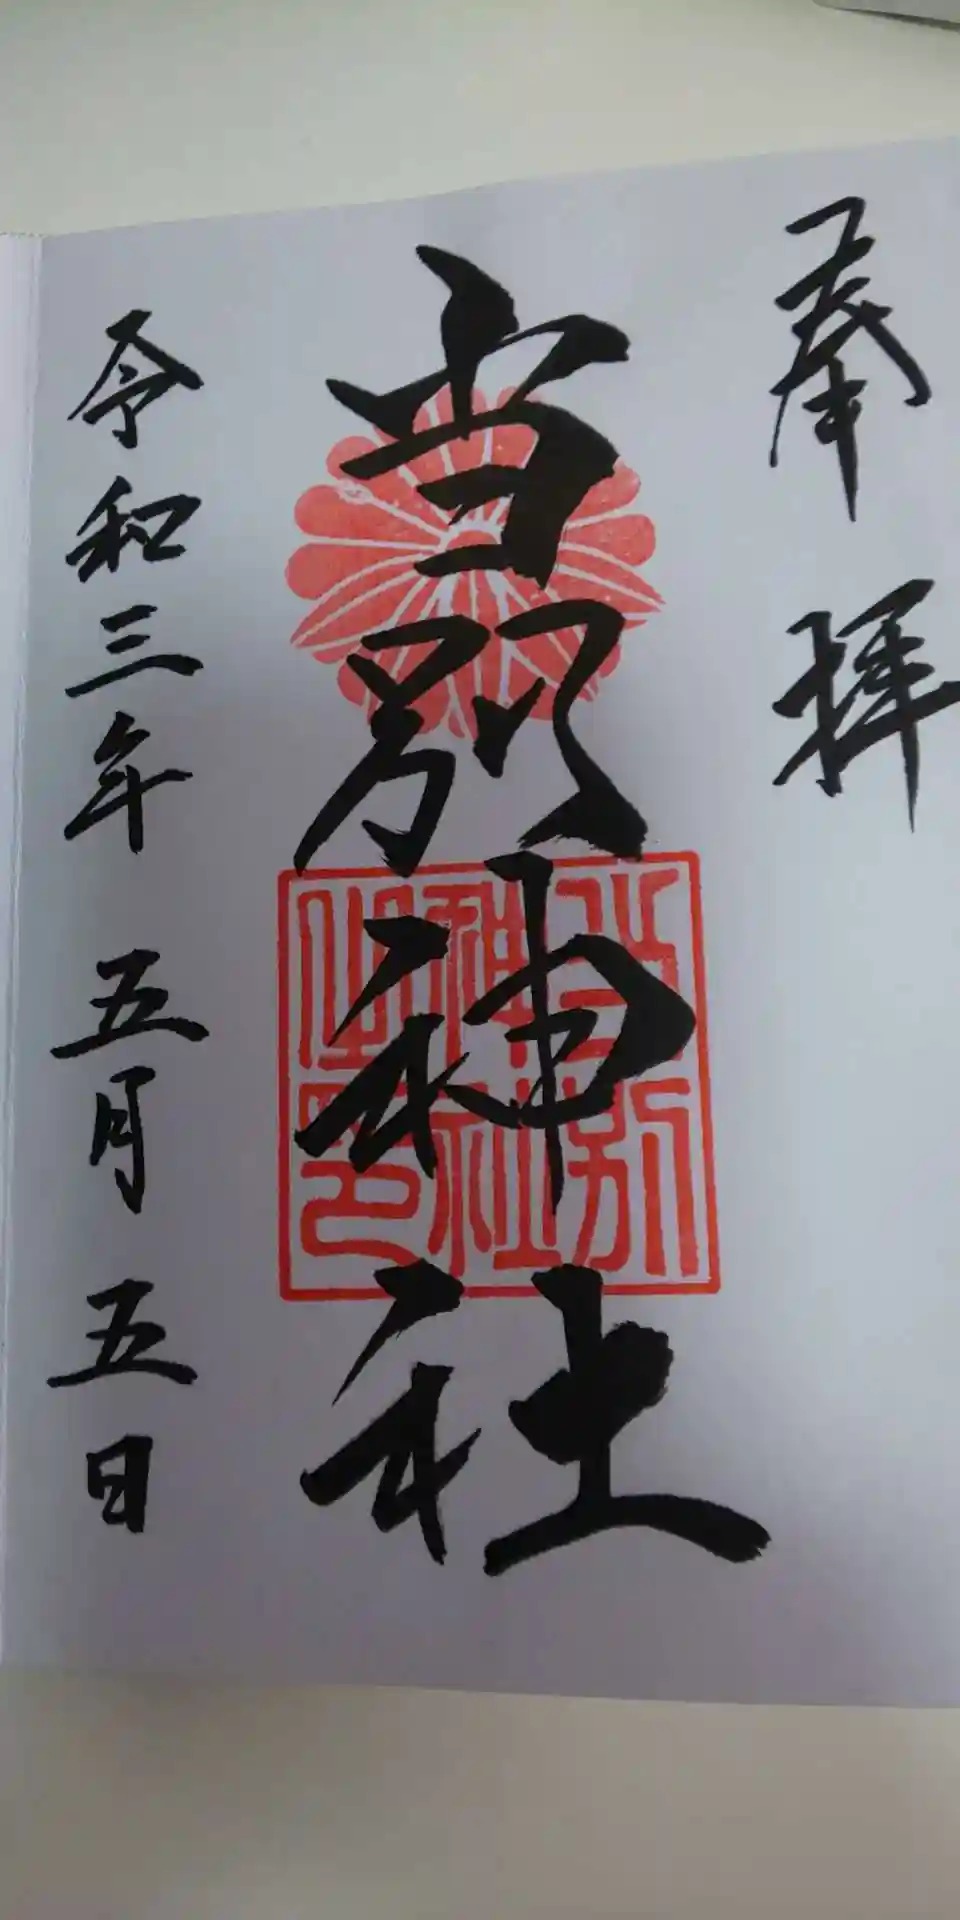 奉拝
当別神社
当別神社之印
令和三年 五月 五日